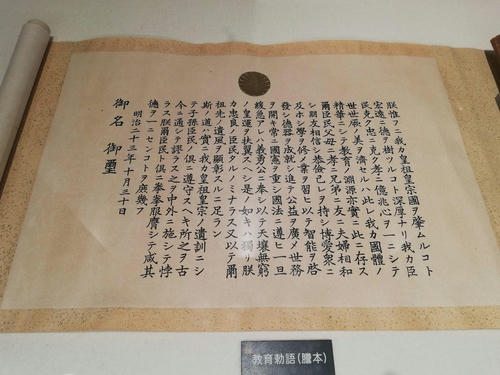 朕惟フニ我カ皇祖皇宗國ヲ肇ムルコト
宏遠ニ德ヲ樹ツルコト深厚ナリ我カ臣
民克ク忠ニ克ク孝ニ億兆心ヲ一ニシテ
世世厥ノ美ヲ濟セルハ此レ我カ國體ノ
精華ニシテ教育ノ淵源亦實ニ此ニ存ス
爾臣民父母ニ孝ニ兄弟ニ友ニ夫婦相和
シ朋友相信シ恭儉己レヲ持シ博愛衆ニ
及ホシ學ヲ修メ業ヲ習ヒ以テ智能ヲ啓
發シ德器ヲ成就シ進テ公益ヲ廣メ世務
ヲ開キ常ニ國憲ヲ重シ國法ニ遵ヒ一旦
緩急アレハ義勇公ニ奉シ以テ天壤無窮
ノ皇運ヲ扶翼スヘシ是ノ如キハ獨リ朕
カ忠良ノ臣民タルノミナラス又以テ爾
祖先ノ遺風ヲ顯彰スルニ足ラン
斯ノ道ハ實ニ我カ皇祖皇宗ノ遺訓ニシ
テ子孫臣民ノ倶ニ遵守スヘキ所之ヲ古
今ニ通シテ謬ラス之ヲ中外ニ施シテ悖
ラス朕爾臣民ト倶ニ拳拳服膺シテ咸其
德ヲ一ニセンコトヲ庶幾フ
明治二十三年十月三十日
御名 御璽
教育勅語(謄本)